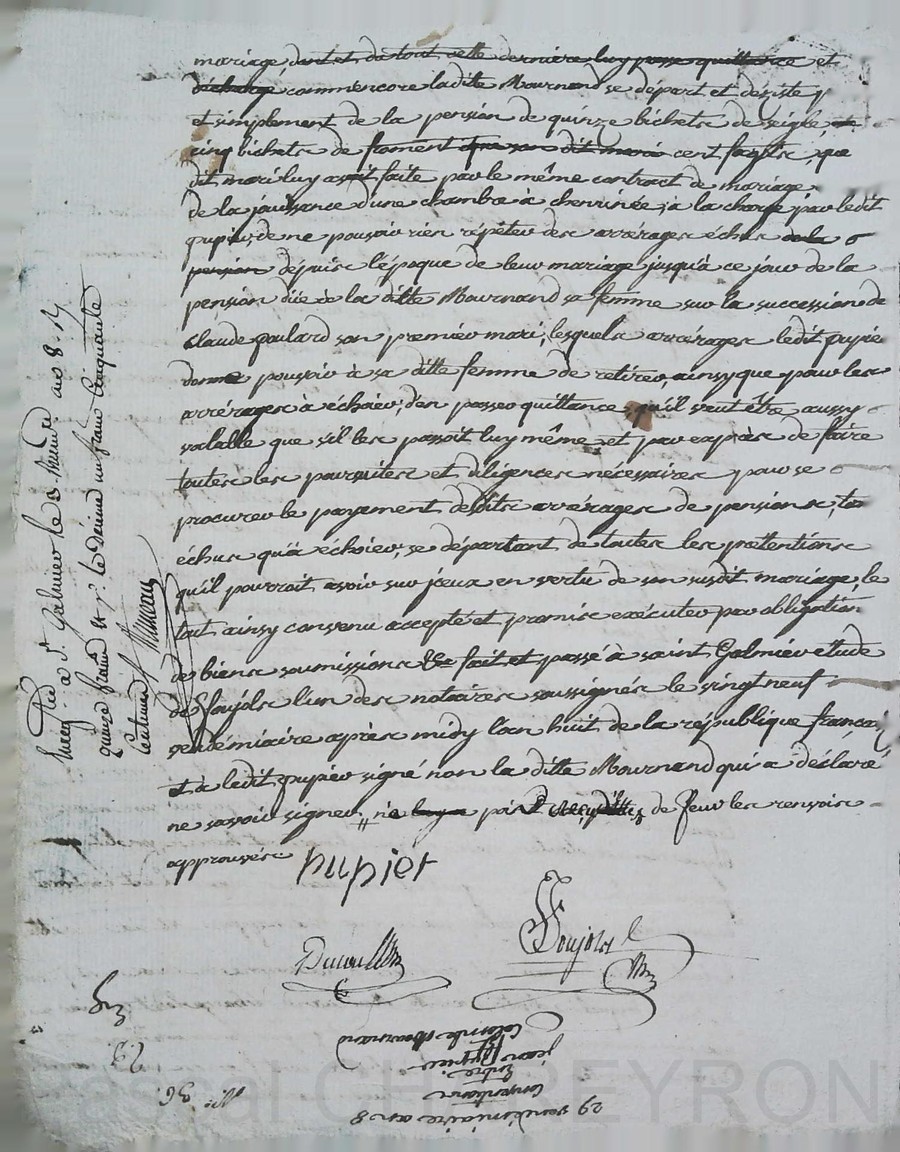 mariage dont et du tout cette derniere luy passe quittance et
décharge comme encore ladite Mournand se départ et desiste
et simplement de la pension de quinze bichets de seigle, et
cinq bichets de froment que son dit mari cent fagots, que
dit mari luy avait faite par le même contract de mariage
de la jouissance d'une chambre à cheminée; à la charge par ledit
pupier de ne pouvoir rien répéter des arrérages échus de la
pension depuis l'époque de leur mariage jusqu'à ce jour de la
pension düe à la ditte Mournand sa femme sur la succession de
Claude poulard son premier mari, lesquels arrérages ledit pupier
donne pouvoir à sa ditte femme de retirer, ainsy que pour les
arrérages à échoier, d'en passer quittance, qu'il veut être aussy
valable que s'il les passoit luy même, et par exprès de faire
toutes les poursuites et diligences nécessaires pour se
procurer le payement desdits arrérages de pensions, tant
échus qu'à échoier, se départant de toutes les prétentions
qu'il pourrait avoir sur iceux en vertu de son susdit mariage, le
tout ainsy convenu accepté et promis exécuter par obligation
de biens soumissions &c fait et passé à saint Galmier étude
de Soujols l'un des notaires soussignés le vingt neuf
vendémiaire après midy l'an huit de la république françai
et a ledit pupier signé non la ditte Mournand qui a déclaré
ne savoir signer, ne point de deux les renvois
approuvés
pupier
Soujols
29 vendémiaire an 8
Conventions
Entre
jean Pupier
et
Mournand
N.° 36
Enreg. à St Galmier le 3 an 8. R
quinze francs & p.r le Décime un franc Cinquante
Centimes